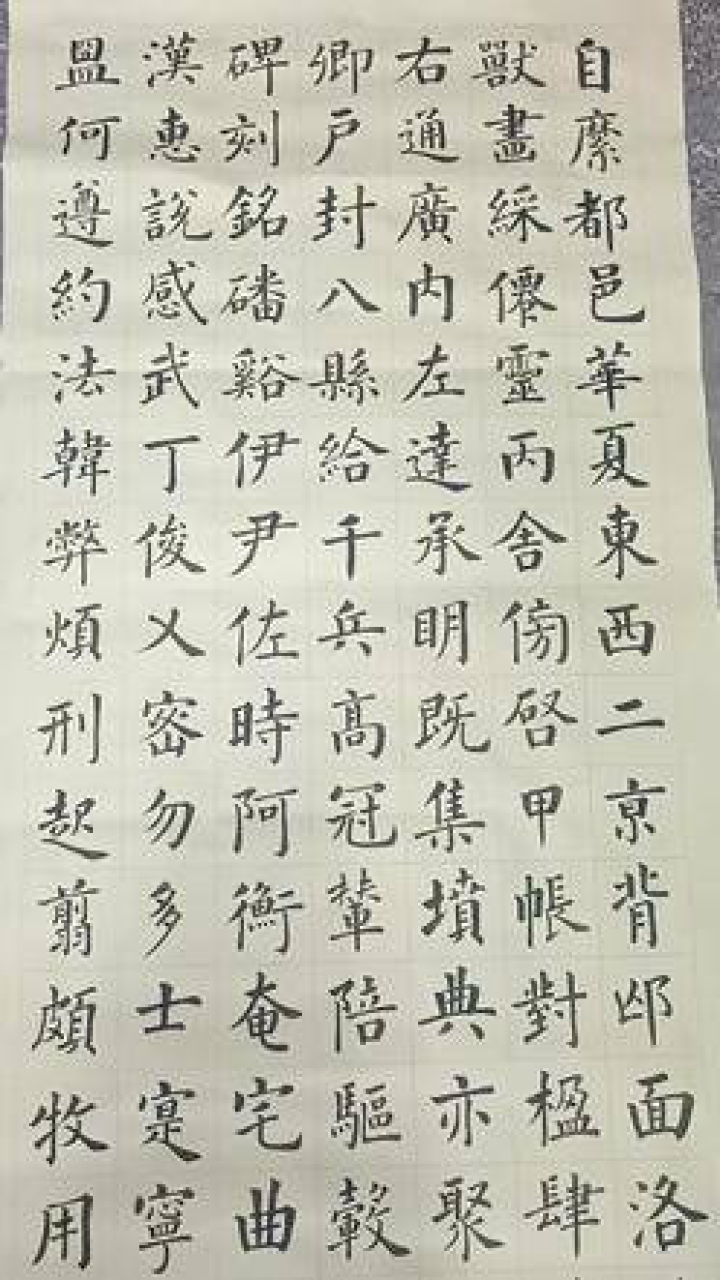 自縻都邑華夏東西二京背邙面洛
獸畫綵僊靈丙舍傍啓甲帳對楹肆
右通廣内左達承明既集墳典亦聚
卿戸封八縣給千兵髙冠輦陪驅轂
碑刻銘磻谿伊尹佐時阿衡奄宅曲
漢惠說感武丁俊乂密勿多士寔寧
盟何遵約法韓弊煩刑起翦頗牧用